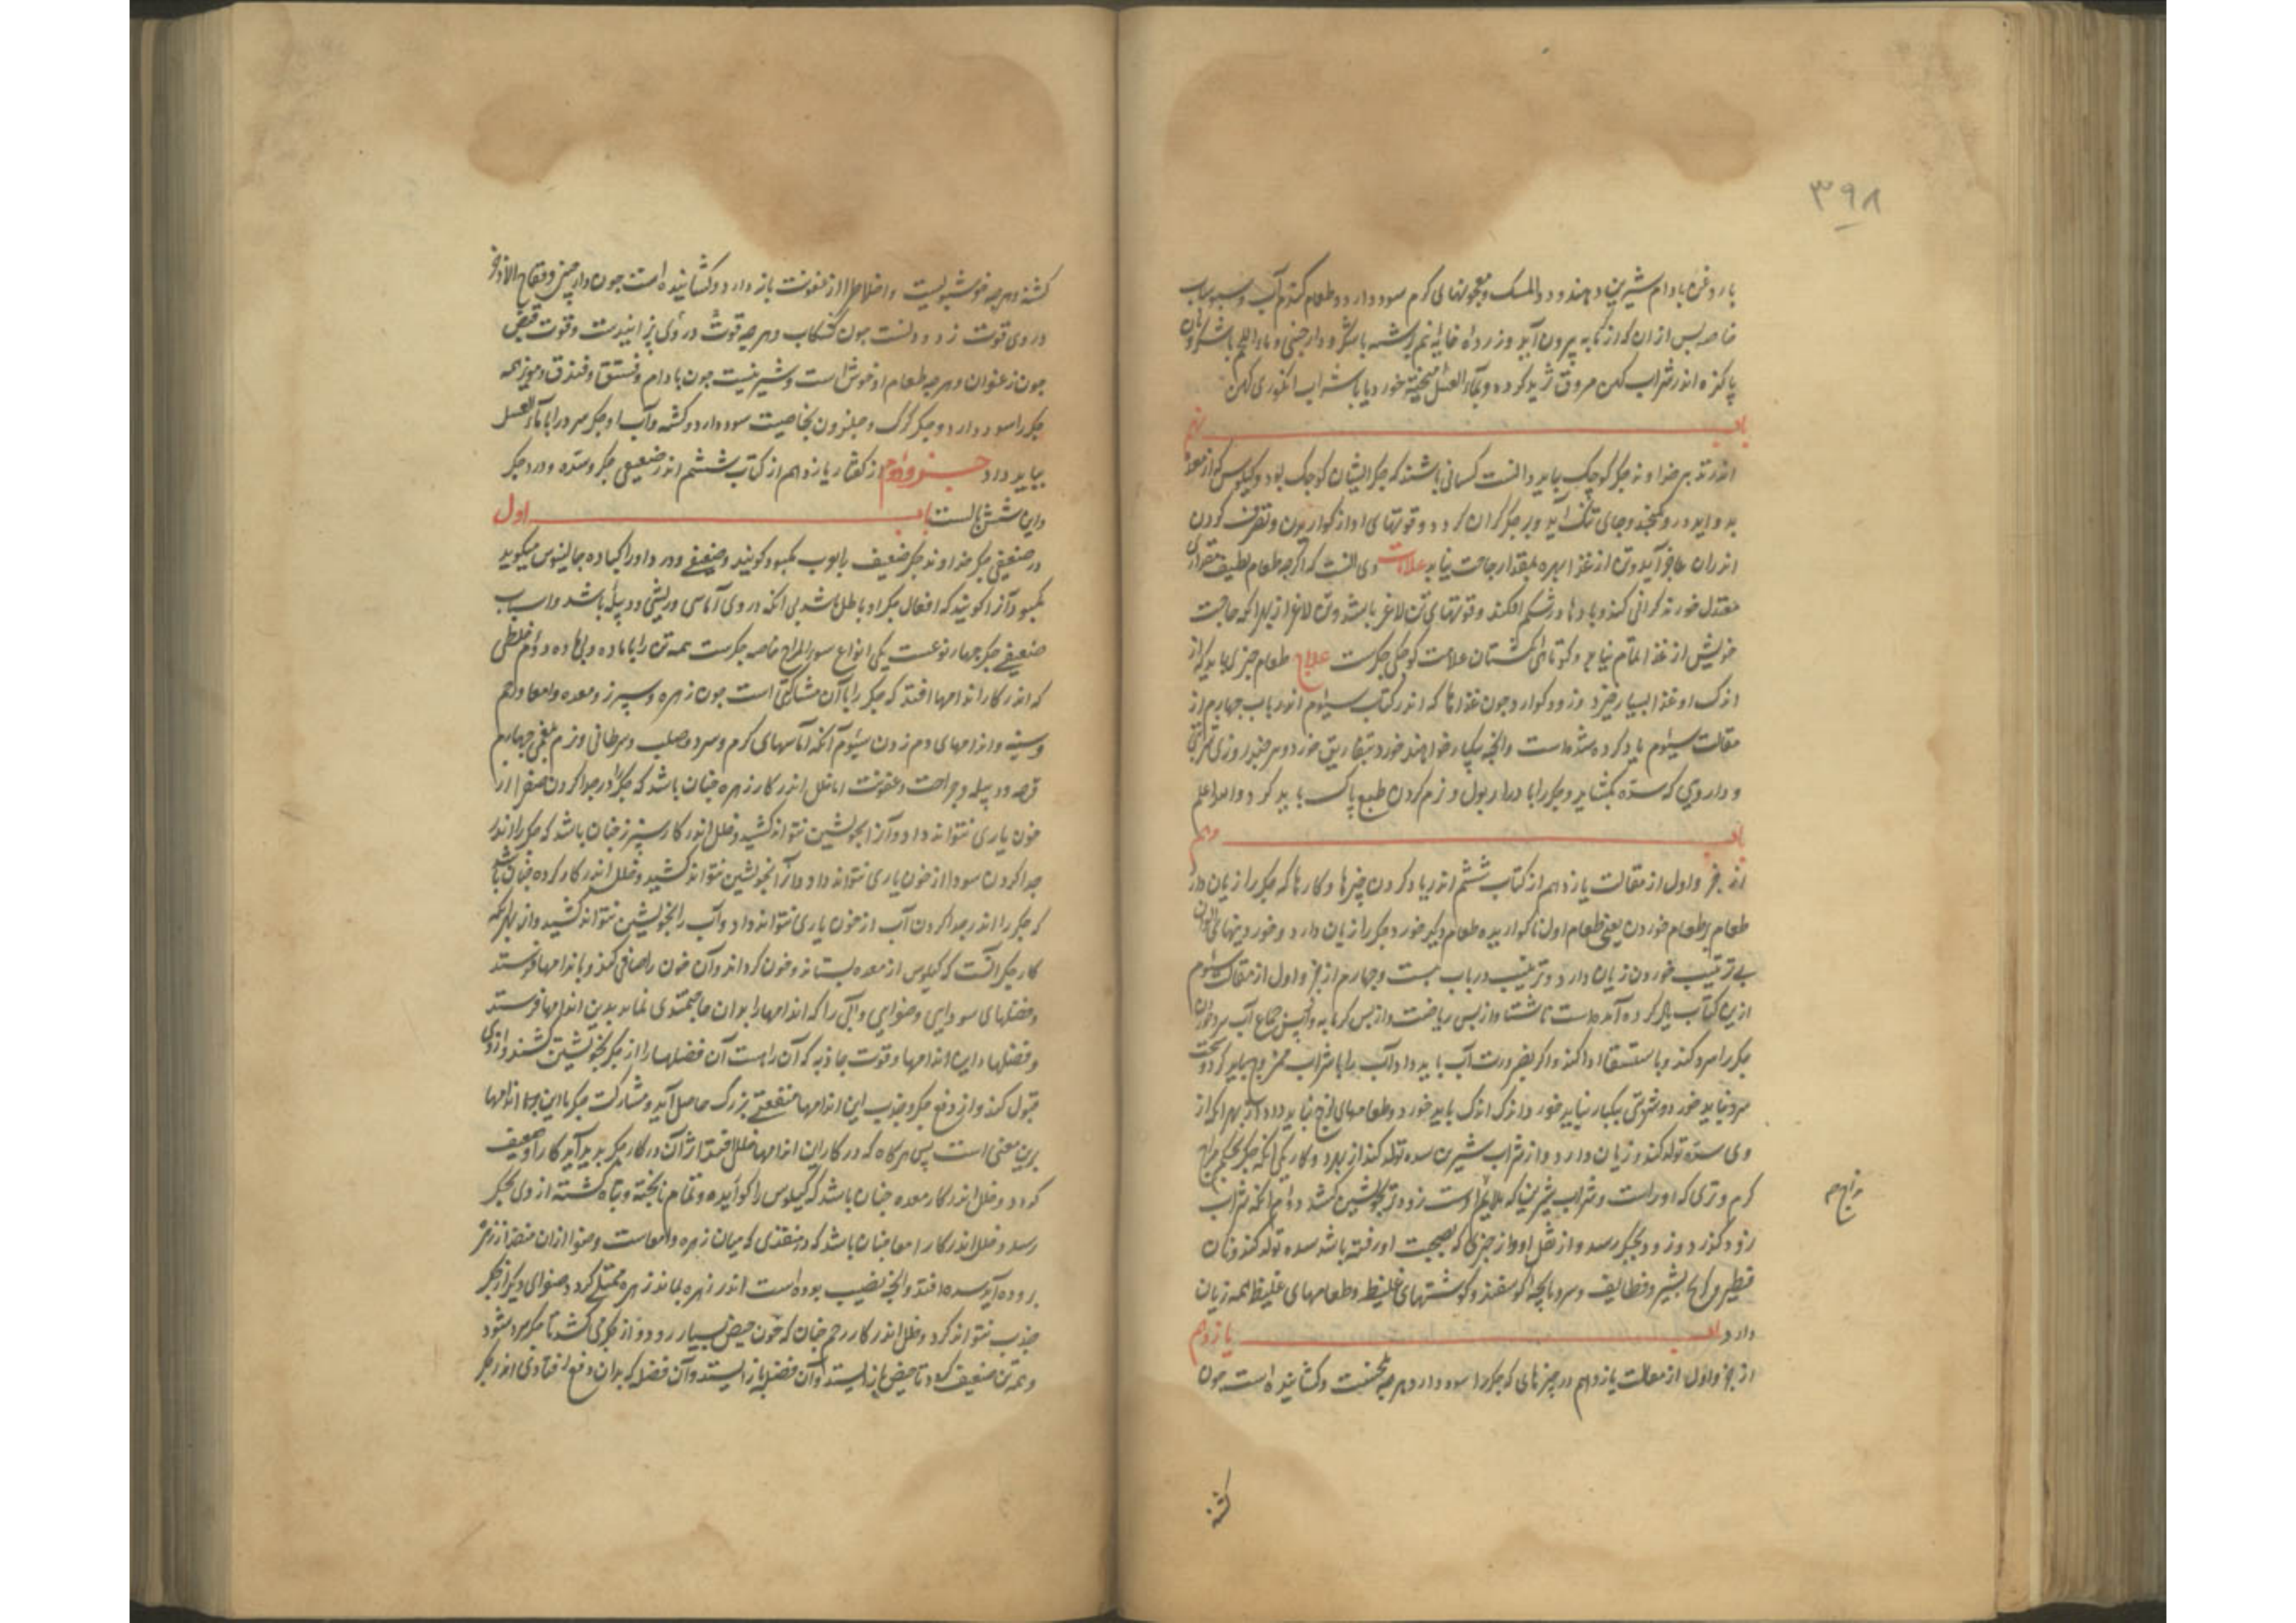 ۳۹۸
با روغن بادام شیرین دهند و دواء المسک و معجونهای گرم سود دارد و طعام گندم آب و سبوساب
خاصه پس از ان که از گرمابه بیرون آید و زرده خایه نیم برشته با شکر و دارچینی و ماء اللحم با شکر و نان
پاکیزه اندر شراب کهن مروق ثرید کرده و بماء العسل پخته خورد یا با شراب انگوری کهن
باب نهم
اندر تدبیر خداوند جگر کوچک بباید دانست کسانی باشند که جگر ایشان کوچک بود و کیلوس که از معده
بدو اید درو نگنجد و جای تنگ آید و بر جگر گران گردد و قوتهای او از گواریدن و تصرف کردن
اندران عاجز آید و تن از غذا بهره بمقدار حاجت نیابد علامات وی انست که اگرچه طعام لطیف مقدار
معتدل خورند گرانی کند و بادها در شکم افکند و قوتهای تن لاغر باشد و تن لاغر از بهر انکه حاجت
خویش از غذا تمام نیابد و کوتاهی انگشتان علامت کوچکی جگرست علاج طعام چیزی باید که از
اندک او غذا بسیار خیزد و زود گوارد چون غذاها که اندر کتاب سیوم اندر باب چهارم از
مقالت سیوم یاد کرده شده است و انچه بیکبار خواهند خورد بتفاریق خورد و هر چند روزی
و داروی که سده بگشاید و جگر را بادرار بول و نرم کردن طبع پاک باید کرد و الله اعلم
باب دهم
از جزو اول از مقالت یازدهم از کتاب ششم اندر یاد کردن چیزها و کارها که جگر را زیان دارد
طعام بر طعام خوردن یعنی طعام اول ناگواریده طعام دیگر خورد جگر را زیان دارد و خوردنیهای الوان
بی ترتیب خوردن زیان دارد و ترتیب در باب بیست و چهارم از جزو اول از مقالت سیوم
ازین کتاب یاد کرده آمده است ناشتا و از پس ریاضت و از پس گرمابه و از پس جماع آب سرد خوردن
جگر را سرد کند و باستسقا ادا کند و اگر بضرورت آب باید داد آب را با شراب ممزوج باید کرد و سخت
سرد نباید خورد و شربتی بیکبار نباید خورد و اندک اندک باید خورد و طعامهای لزج نباید داد از بهر انکه از
وی سده تولد کند و زیان دارد و از شراب شیرین سده تولد کند از بهر دو کار یکی انکه جگر بحکم مزاج
گرم و تری که او راست و شراب شیرین که ملایم اوست زودتر بخویشتن کشد دوم انکه شراب
مزاج م
زود گذرد و زود بجگر رسد و از ثقل او و از چیزی که بصحبت او رفته باشد سده تولد کند و نان
فطیر و بشیر و قطایف و سر و پاچه گوسفند و گوشتهای غلیظ و طعامهای غلیظ همه زیان
دارد باب یازدهم
از جزو اول از مقالت یازدهم در چیزهای که جگر را سود دارد هرچه تلخست و گشاینده است چون
کشنه
کشنه و هرچه خوشبویست و اخلاط را از عفونت باز دارد و گشاینده است چون دارچینی و فقاح الاذخر
در وی قوت زدودنست چون کشکاب و هرچه قوت در وی پزانیدنست و قوت قبض
چون زعفران و هرچه طعام او خوش است و شیرینیست چون بادام و فستق و فندق و مویز همه
جگر را سود دارد و جگر گرگ و حلزون بخاصیت سود دارد و کشنه و آب او جگر سرد را با ماء العسل
بباید داد جزو دوم از گفتار یازدهم از کتاب ششم اندر ضعیفی جگر و سده و درد جگر
و این شش بابست باب اول
در ضعیفی جگر خداوند جگر ضعیف را بوب مکبود گویند و ضعیفی و درد او را کباده جالینوس میگوید
مکبود آنرا گویند که افعال جگر او باطل باشد بی انکه در وی آماسی و ریشی و دبیله باشد و اسباب
ضعیفی جگر چهار نوعست یکی انواع سوء المزاج خاصه جگرست همه تن را با ماده و بی ماده دوم خللی
که اندر کار اندامها افتد که جگر را با آن مشارکتی است چون زهره و سپرز و معده و امعا و رحم
و سینه و اندامهای دم زدن سیوم آنکه آماسهای گرم و سرد و صلب و سرطانی و نرم بلغمی چهارم
قرحه و دبیله و جراحت و عفونت اما خلل اندر کار زهره چنان باشد که جگر را در جدا کردن صفرا از
خون یاری نتواند داد و آنرا بخویشتن نتواند کشید و خلل اندر کار سپرز چنان باشد که جگر را اندر
جدا کردن سودا از خون یاری نتواند داد و انرا بخویشتن نتواند کشید و خلل اندر کار گرده چنان باشد
که جگر را اندر جدا کردن آب از خون یاری نتواند داد و آب را بخویشتن نتواند کشید و از بهر انکه
کار جگر انست که کیلوس از معده بستاند و خون گرداند و آن خون را صافی کند و باندامها فرستد
و فضلهای سودایی و صفرایی و آبی را که اندامها را بدان حاجتمندی نماند بدین اندامها فرستد
و فضلها و این اندامها و قوت جاذبه که آن راست آن فضلها را از جگر بخویشتن کشند و از وی
قبول کنند و از دفع جگر و جذب این اندامها منفعتی بزرگ حاصل آید و مشارکت جگر با این اندامها
برین معنی است پس هرگاه که در کار این اندامها خللی افتد اثر آن در کار جگر پدید آید و کار او ضعیف
گردد و خلل اندر کار معده چنان باشد که کیلوس را گواریده و تمام ناپخته و تباه گشته از وی بجگر
رسد و خلل اندر کار امعا چنان باشد که در منفذی که میان زهره و امعاست و صفرا ازان منفذ از زهره
بروده آید سده افتد و انچه نصیب روده است اندر زهره بماند زهره ممتلی گردد و صفرای دیگر از جگر
جذب نتواند کرد و خلل اندر کار رحم چنان که خون حیض بسیار رود و از جگر می کشد تا جگر سرد شود
و همه تن ضعیف گردد تا حیض باز ایستد و آن فضله باز ایستد و آن فضله که بدان دفع افتادی اندر جگر